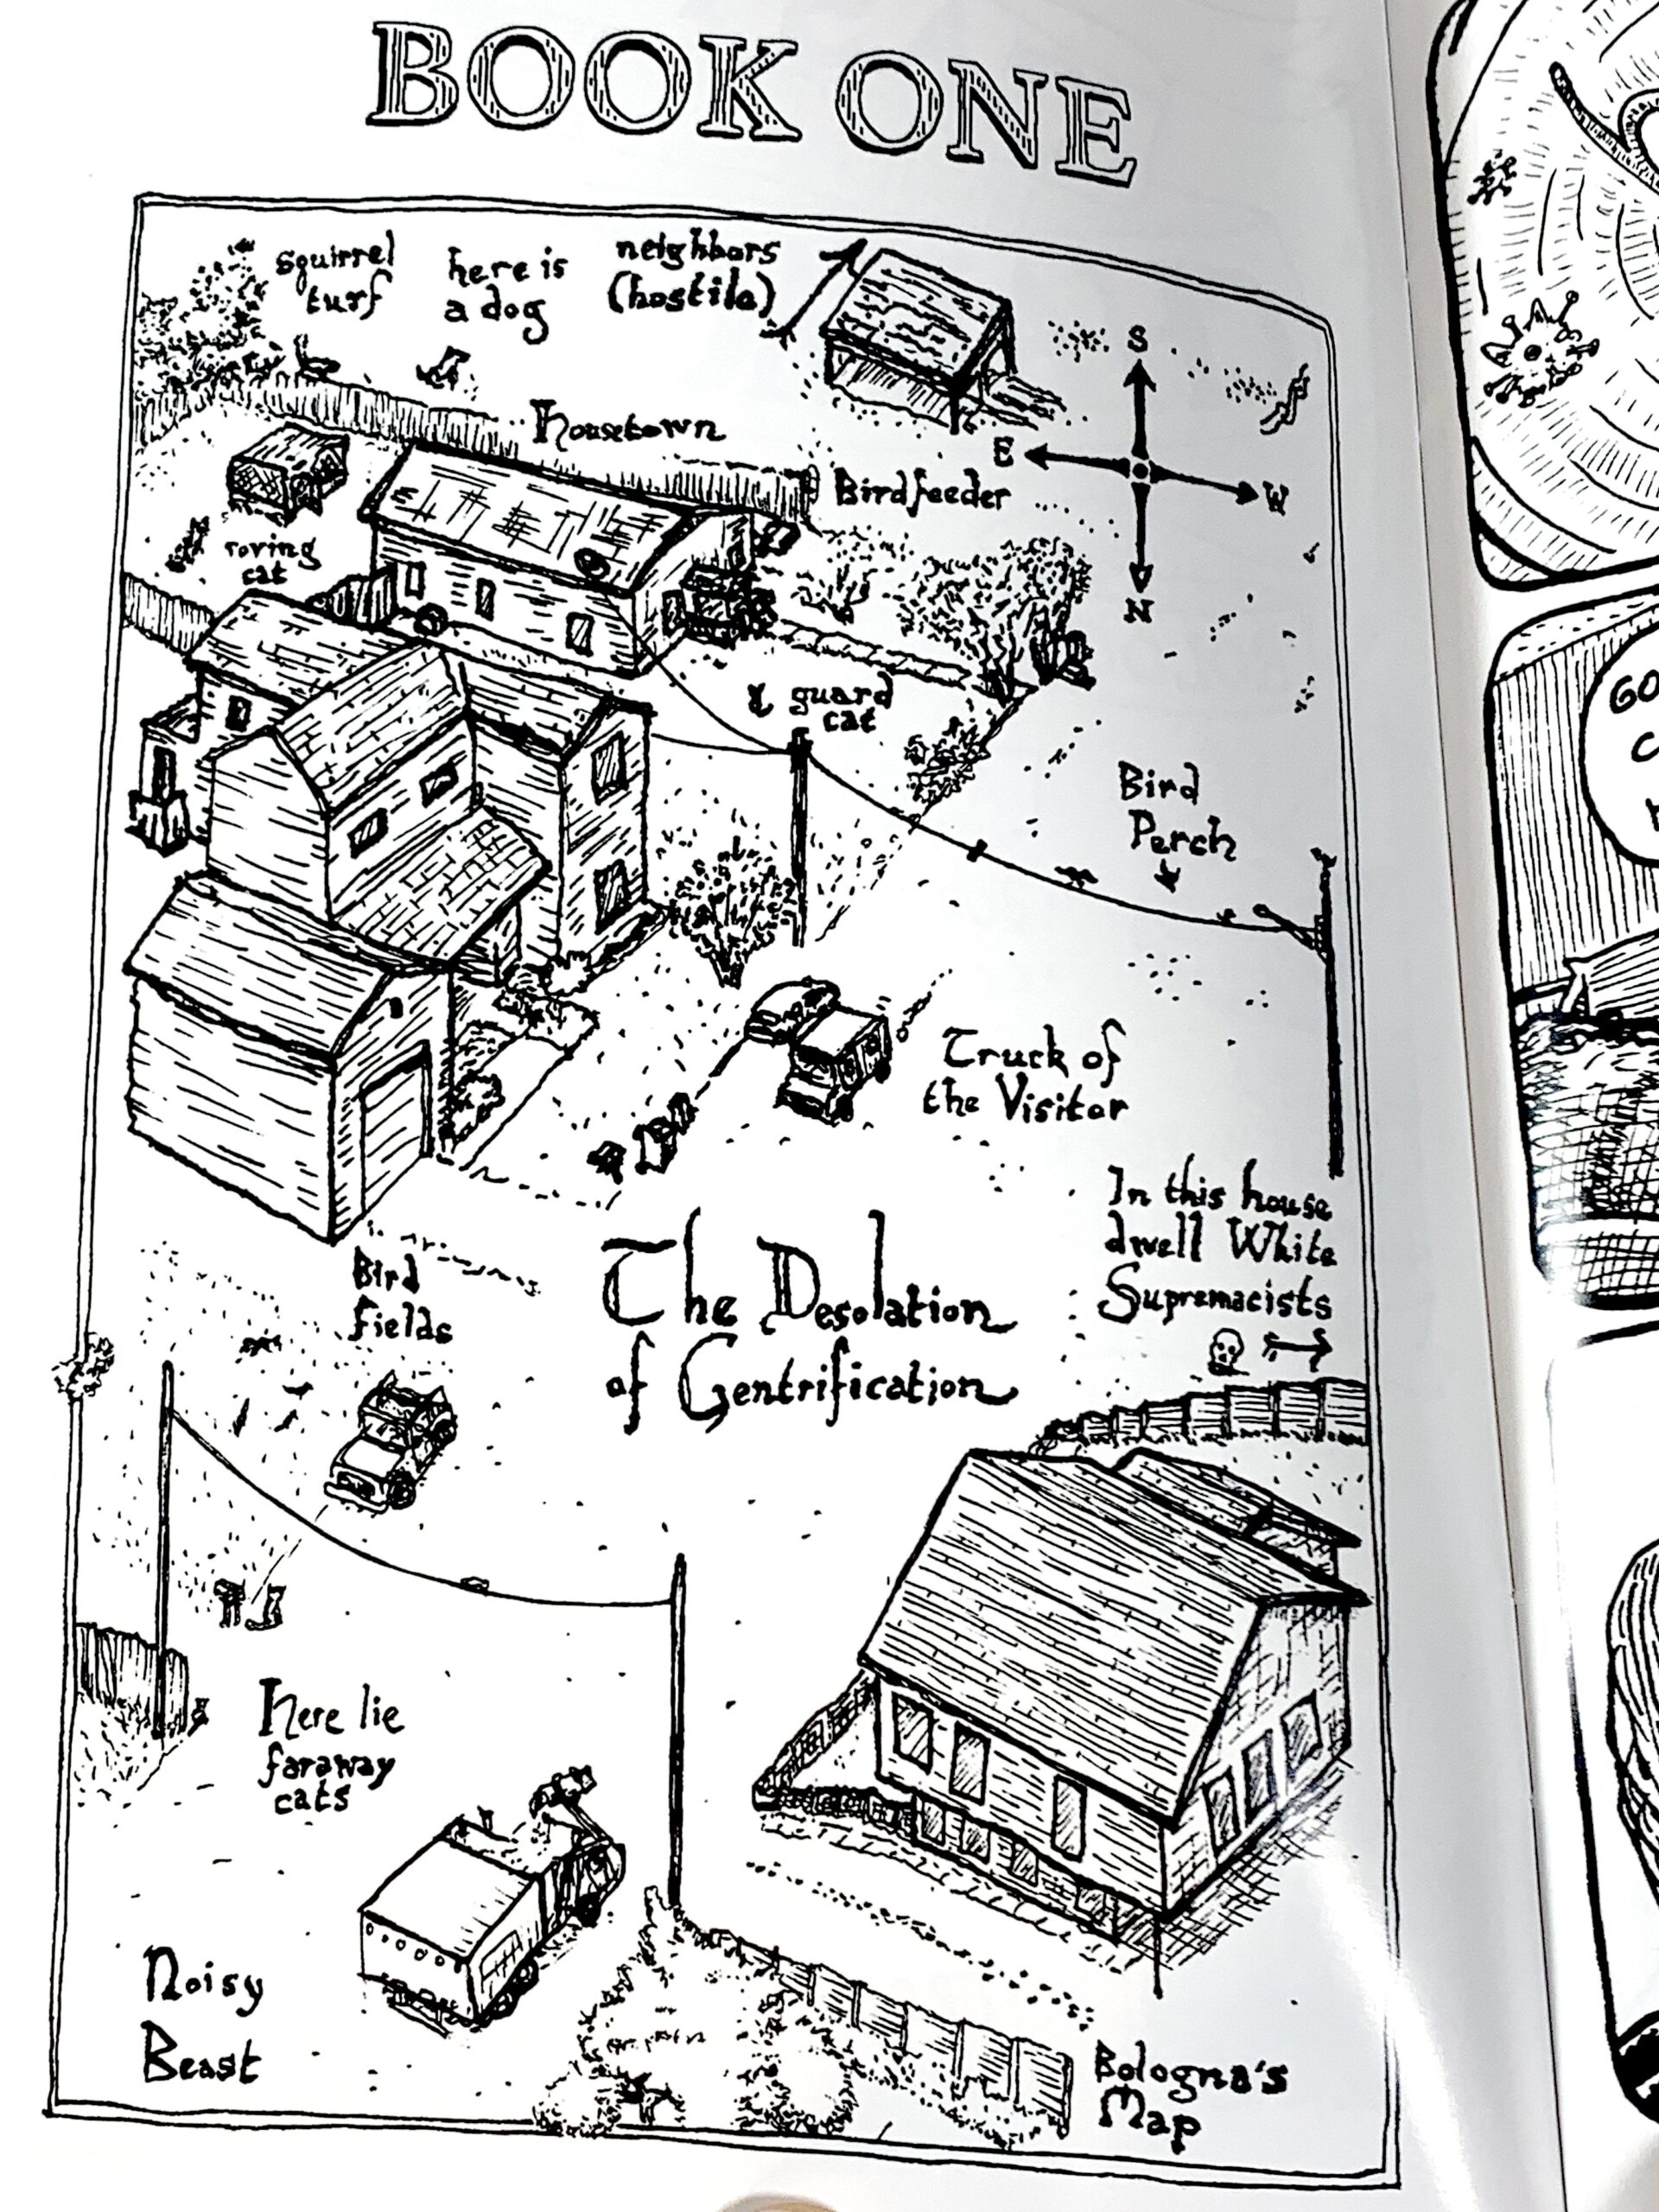 BOOK ONE
squirrel
turf
here is
a dog
neighbors
(hostile)
Housetown
Birdfeeder
S
E
W
N
roving
cat
guard
cat
Bird
Perch
Truck of
the Visitor
In this house
dwell White
Supremacists
The Desolation
of Gentrification
Bird
Fields
Here lie
faraway
cats
Noisy
Beast
Bologna's
Map
GO